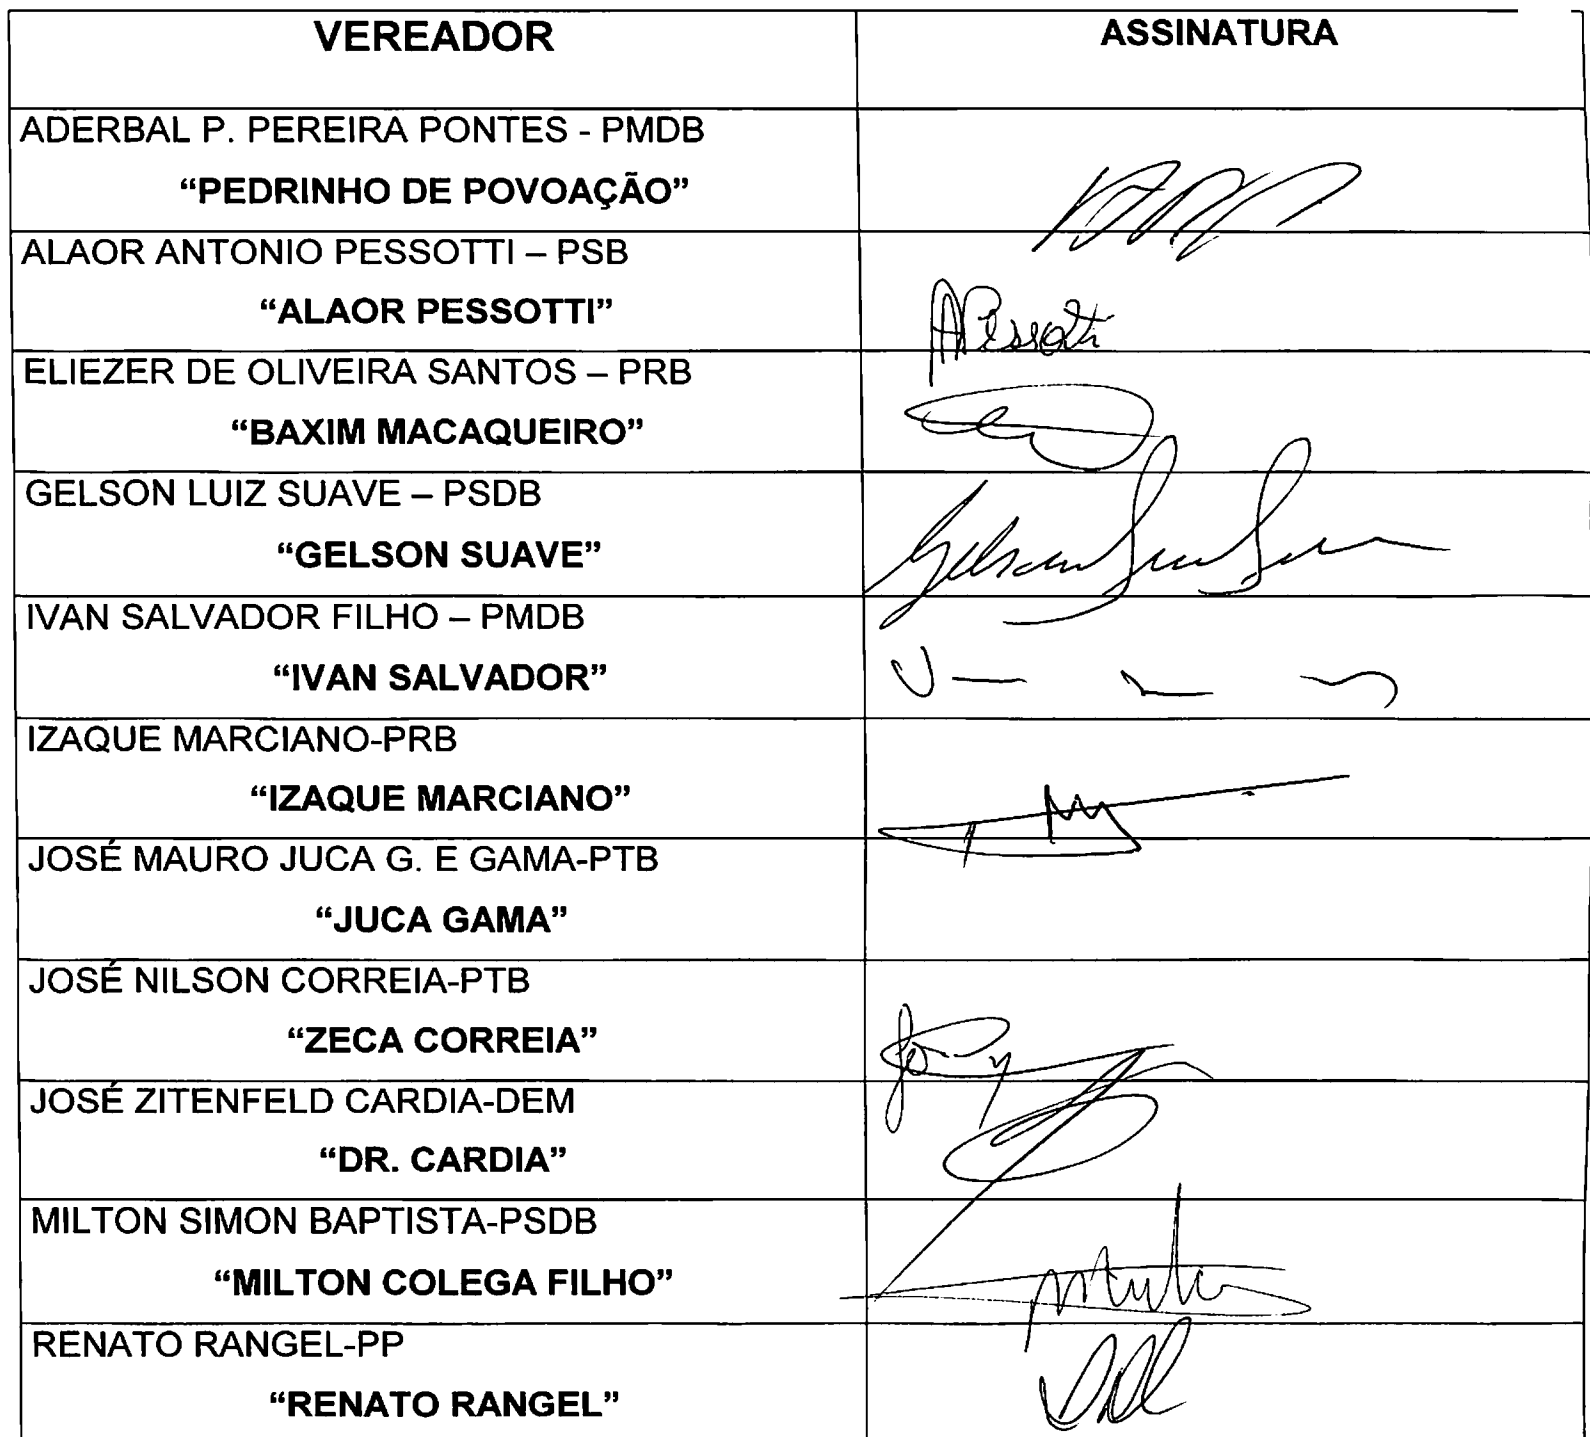 VEREADOR ASSINATURA
ADERBAL P. PEREIRA PONTES - PMDB
“PEDRINHO DE POVOAÇÃO”
ALAOR ANTONIO PESSOTTI – PSB
“ALAOR PESSOTTI”
APessotti
ELIEZER DE OLIVEIRA SANTOS – PRB
“BAXIM MACAQUEIRO”
GELSON LUIZ SUAVE – PSDB
“GELSON SUAVE”
Gelson
IVAN SALVADOR FILHO – PMDB
“IVAN SALVADOR”
IZAQUE MARCIANO-PRB
“IZAQUE MARCIANO”
JOSÉ MAURO JUCA G. E GAMA-PTB
“JUCA GAMA”
JOSÉ NILSON CORREIA-PTB
“ZECA CORREIA”
JOSÉ ZITENFELD CARDIA-DEM
“DR. CARDIA”
MILTON SIMON BAPTISTA-PSDB
“MILTON COLEGA FILHO”
RENATO RANGEL-PP
“RENATO RANGEL”